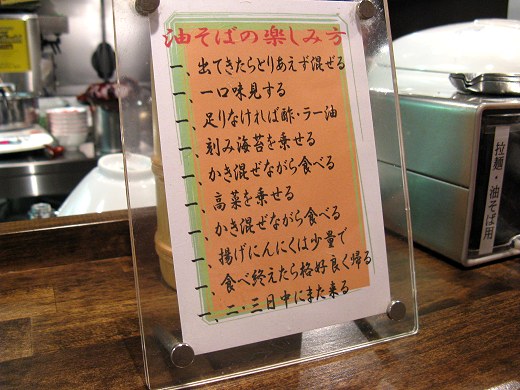 油そばの楽しみ方
一、出てきたらとりあえず混ぜる
一、一口味見する
一、足りなければ酢・ラー油
一、刻み海苔を乗せる
一、かき混ぜながら食べる
一、高菜を乗せる
一、かき混ぜながら食べる
一、揚げにんにくは少量で
一、食べ終えたら格好良く帰る
一、二・三日中にまた来る
拉麺・油そば用